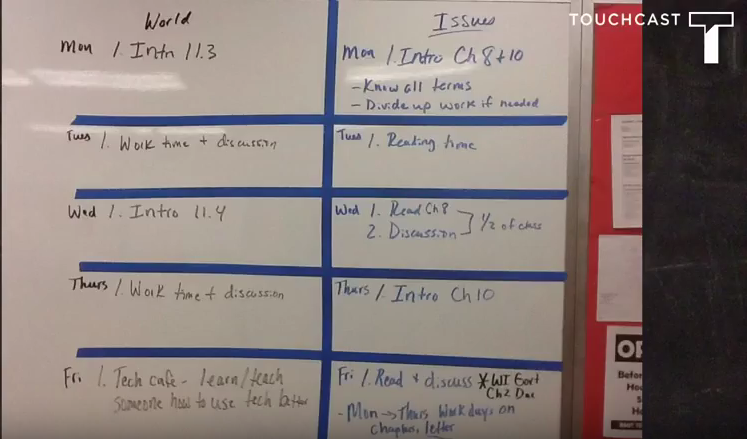 World
Mon 1. Intro 11.3
Tues 1. Work time + discussion
Wed 1. Intro 11.4
Thurs 1. Work time + discussion
Fri 1. Tech cafe - learn/teach
someone how to use tech better
Issues
Mon 1. Intro Ch 8 + 10
- Know all terms
- Divide up work if needed
Tues 1. Reading time
Wed 1. Read Ch 8
2. Discussion
1/2 of class
Thurs 1. Intro Ch 10
Fri 1. Read + discuss * WI Govt
Ch 2 Due
- Mon → Thurs Work days on
letter
TOUCHCAST
T